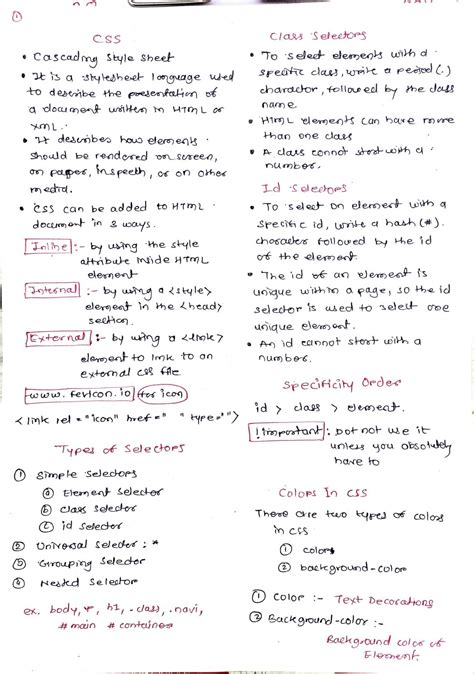 ①
CSS
• Cascading Style Sheet
• It is a stylesheet language used
to describe the presentation of
a document written in HTML or
XML.
• It describes how elements
should be rendered on screen,
on paper, in speech, or on other
media.
• CSS can be added to HTML
document in 3 ways.
Inline :- by using the style
attribute inside HTML
element
Internal :- by using a <style>
element in the <head>
section.
External :- by using a <link>
element to link to an
external CSS file
www.fevicon.io (for icon)
<link rel="icon" href=" " type=" ">
Types of Selectors
① Simple Selectors
ⓐ Element Selector
ⓑ Class Selector
ⓒ id Selector
② Universal Selector : *
③ Grouping Selector
④ Nested Selector
ex. body, h1, .class, .navi,
#main #container
Class Selectors
• To select elements with a
specific class, write a period (.)
character, followed by the class
name
• HTML elements can have more
than one class
• A class cannot start with a
number.
Id Selectors
• To select an element with a
specific id, write a hash (#).
character followed by the id
of the element.
• The id of an element is
unique within a page, so the id
selector is used to select one
unique element.
• An id cannot start with a
number.
Specificity Order
id > class > element.
!important : Do not use it
unless you absolutely
have to
Colors In CSS
There are two types of colors
in CSS
① colors
② background-color
① Color :- Text Decorations
② Background-color :-
Background color of
Element.